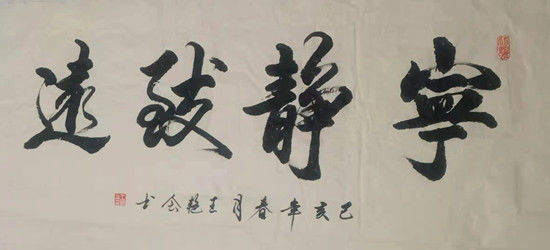 寧靜致遠
己亥年春月王艳会书